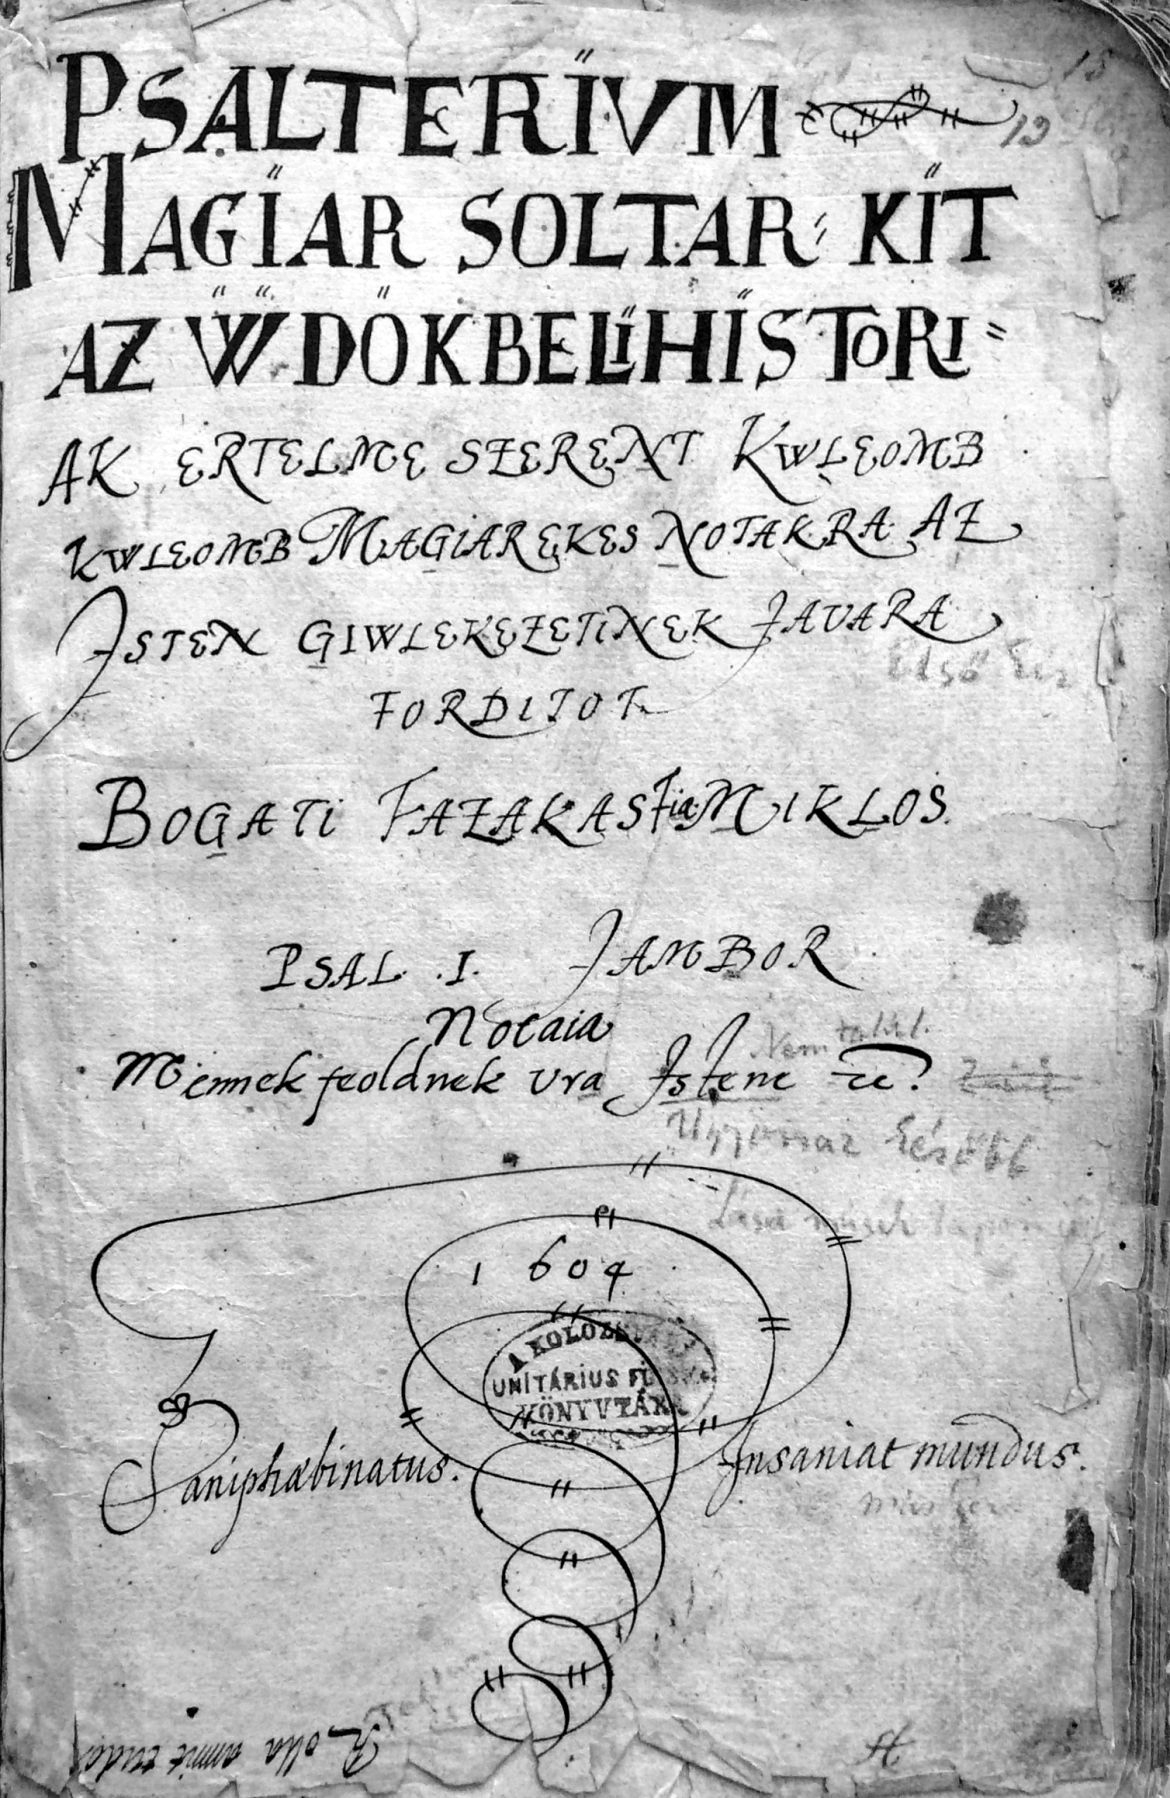 PSALTERIVM
MAGIAR SOLTAR KIT
AZ WDÖKBELI HISTORI=
AK ERTELME SZERENT KWLEOMB
KWLEOMB MAGIAR EKES NOTAKRA AZ
ISTEN GIWLEKEZETINEK JAVARA
FORDITOT
BOGATI FAZAKAS Fia MIKLOS.
PSAL. .I. JAMBOR
Notaia
Mennek feoldnek Vra Istene
1604
A KOLOZSVÁRI
UNITÁRIUS
KÖNYVTÁRA
Saniphæbinatus. Insaniat mundus.